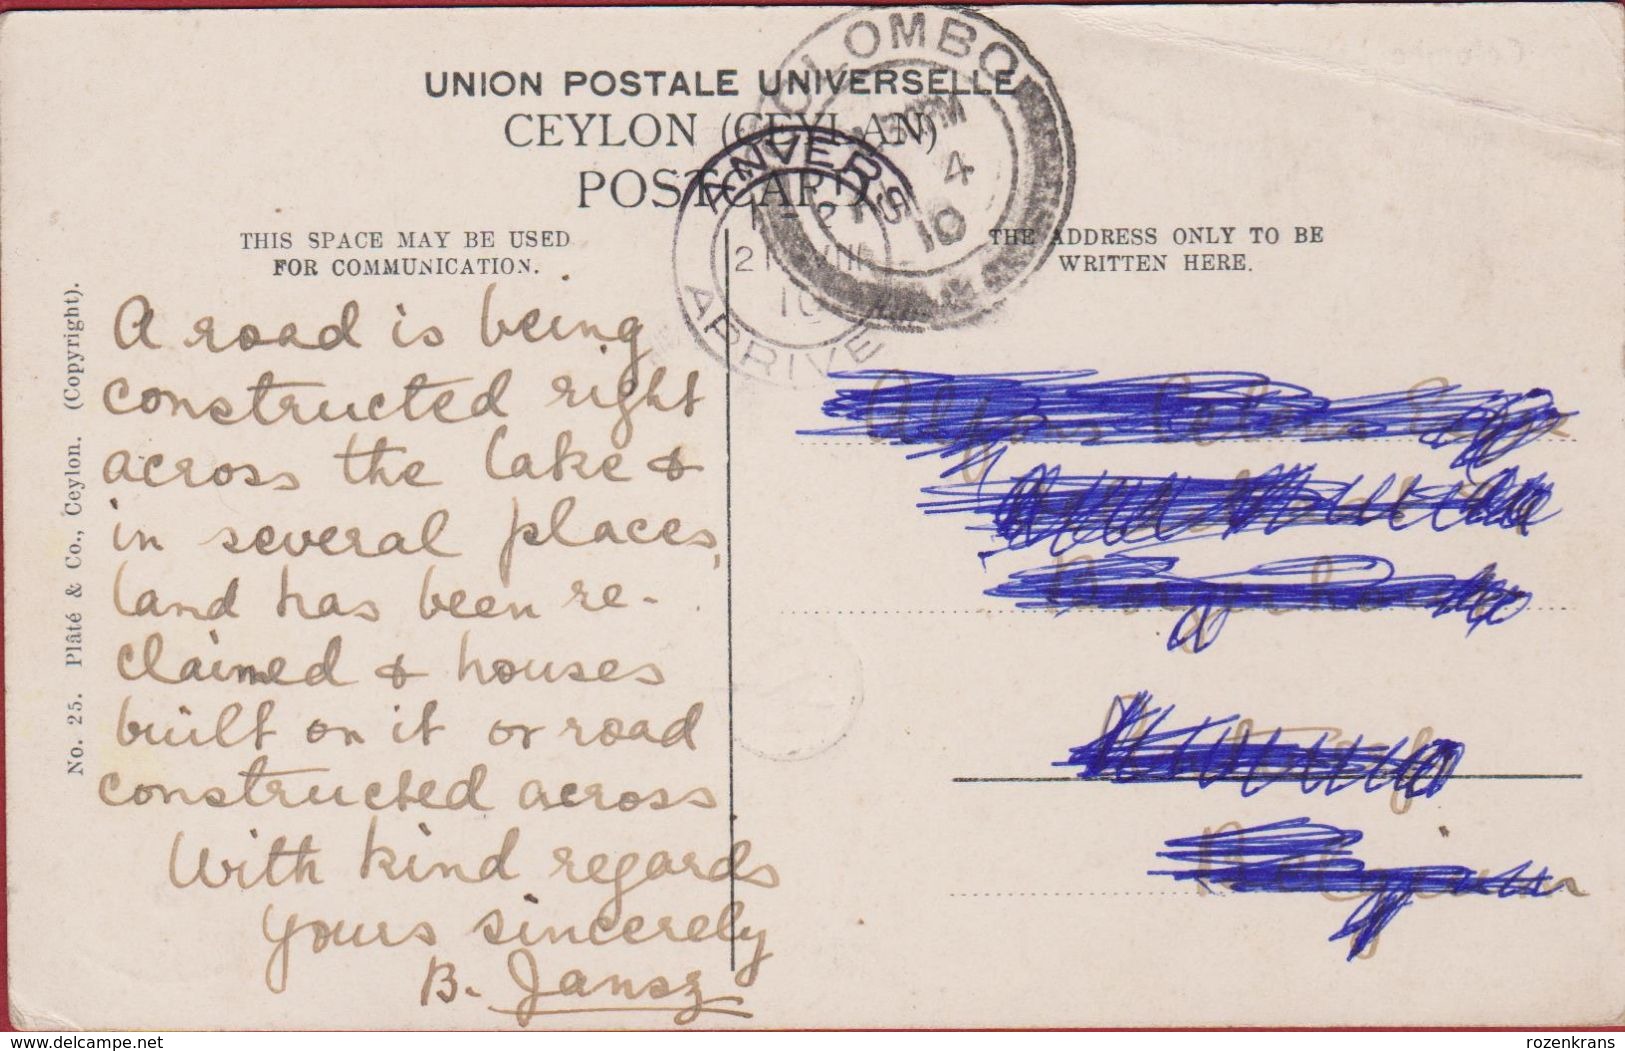 UNION POSTALE UNIVERSELLE
CEYLON (CEYLAN)
POSTCARD
THIS SPACE MAY BE USED
FOR COMMUNICATION.
THE ADDRESS ONLY TO BE
WRITTEN HERE.
COLOMBO
4
10
ANVERS
10
ARRIVE
No. 25. Plâté & Co., Ceylon. (Copyright).
A road is being
constructed right
across the lake &
in several places,
land has been re-
claimed & houses
built on it or road
constructed across
With kind regards
Yours sincerely
B. Jansz
Borgerhout
Belgium
www.delcampe.net
rozenkrans